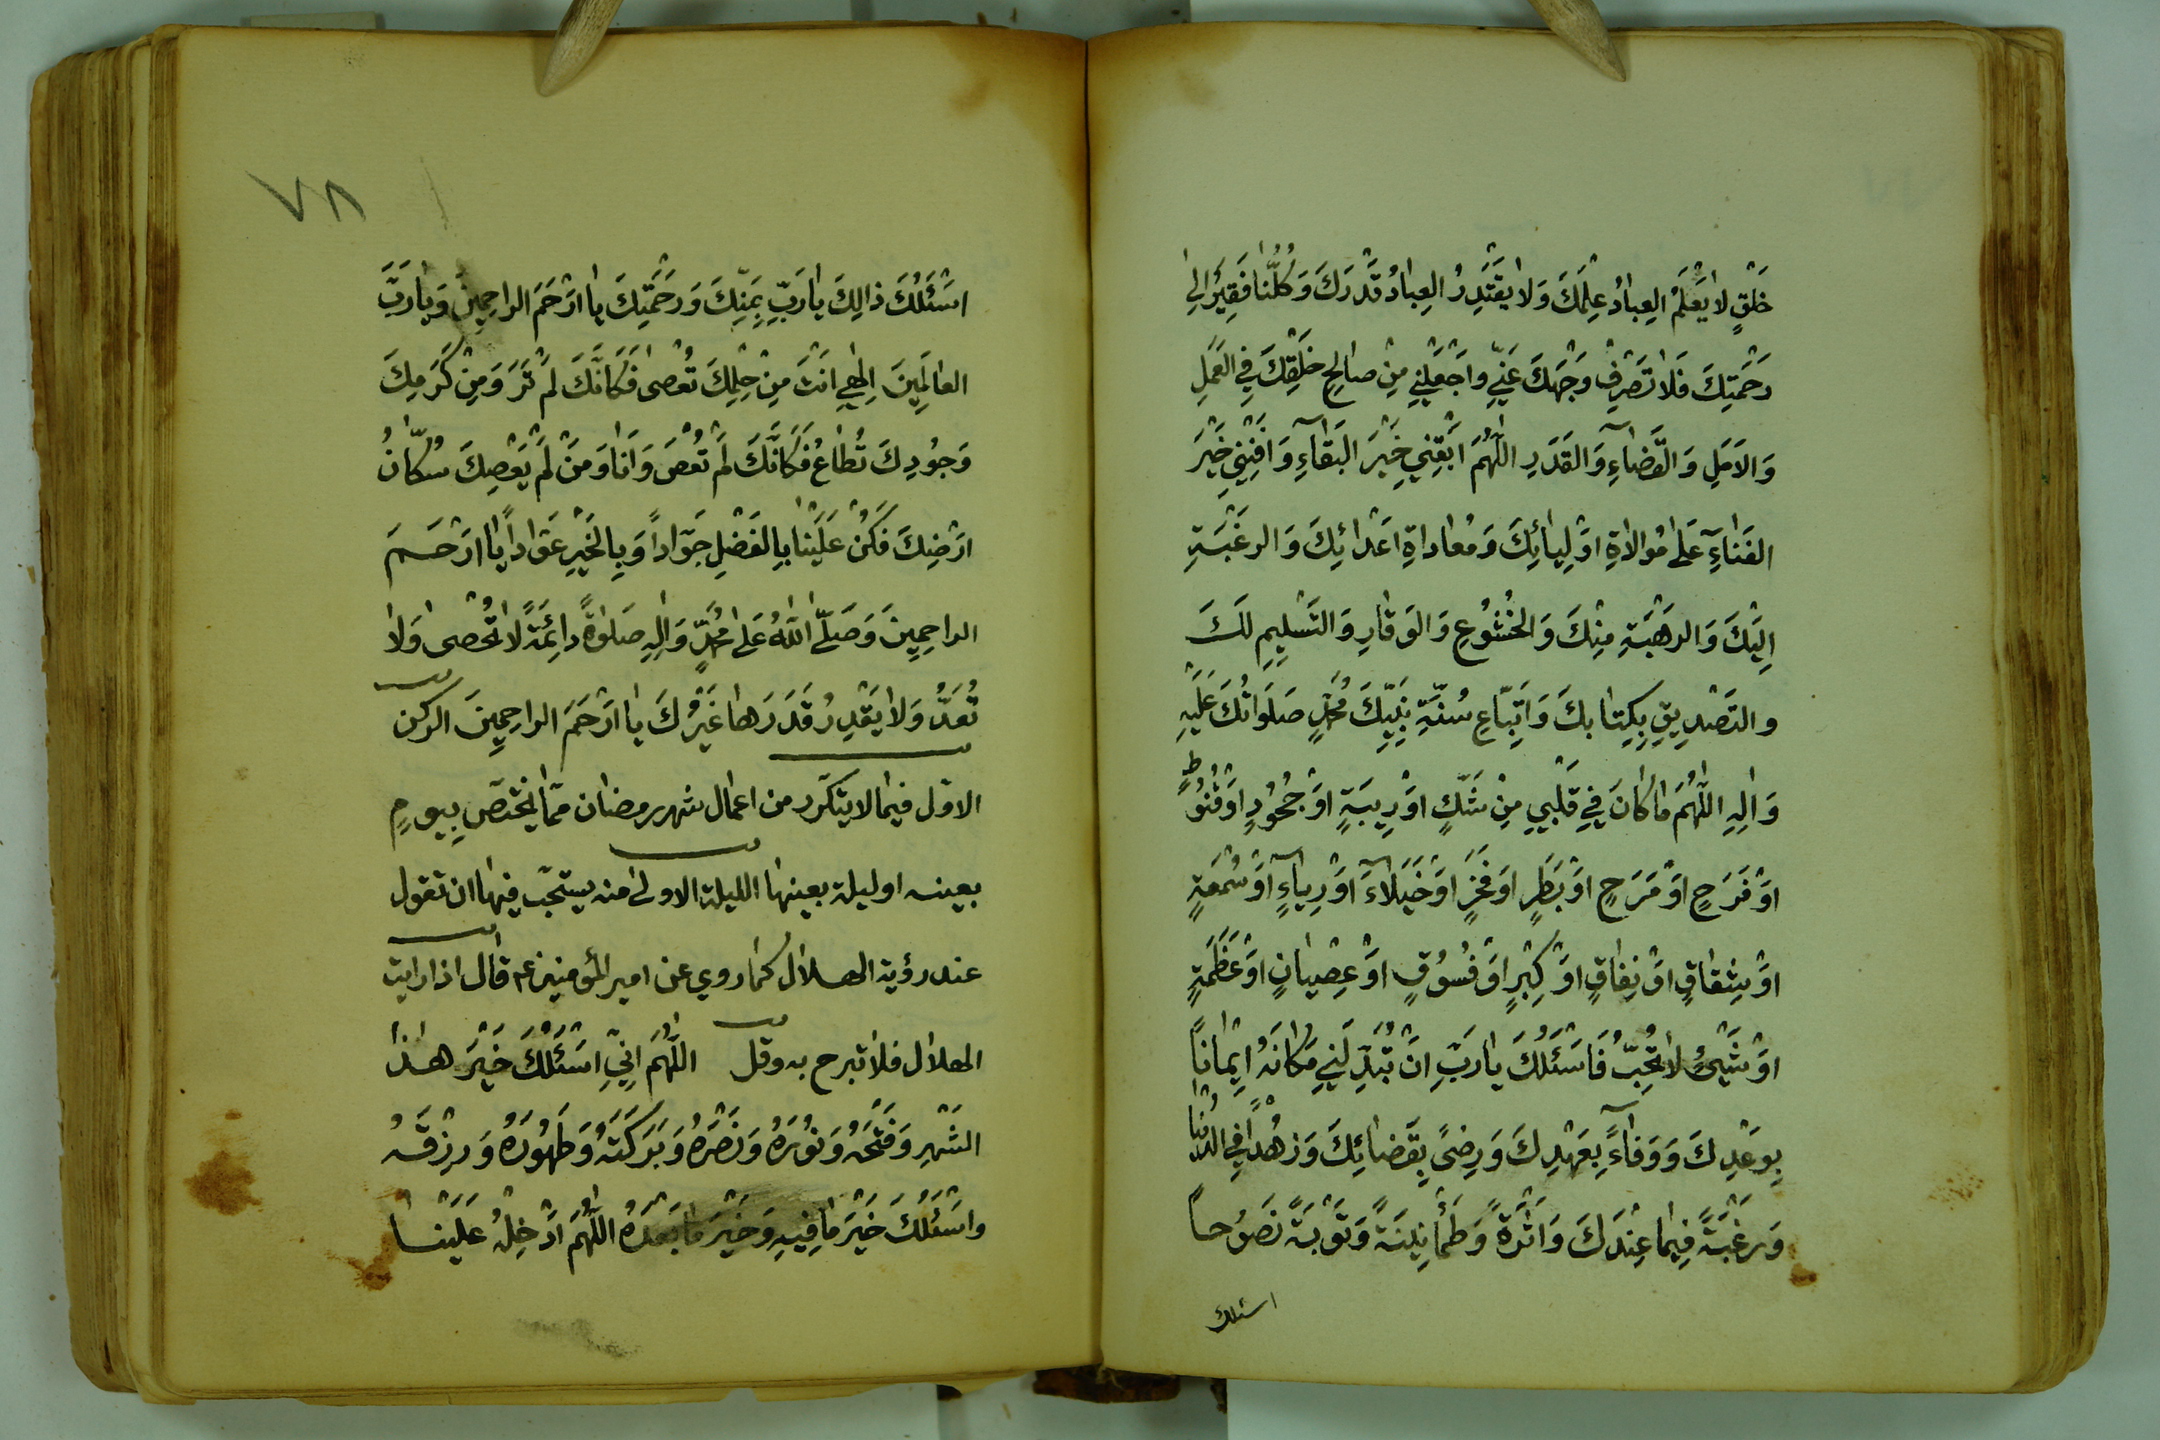 خَلْقٍ لا يَعْلَمُ العِبادُ عِلْمَكَ وَلا يَقْتَدِرُ العِبادُ قَدْرَكَ وَكُلُّنا فَقِيرٌ اِلى
رَحْمَتِكَ فَلا تَصْرِفْ وَجْهَكَ عَنّي وَاجْعَلْنِي مِنْ صالِحِ خَلْقِكَ فِي العَمَلِ
وَالاَمَلِ وَالقَضآءِ وَالقَدَرِ اللّهُمَّ ابْقِنِي خَيْرَ البَقآءِ وَافْنِنِي خَيْرَ
الفَنآءِ عَلى مُوالاةِ اوْلِيائِكَ وَمُعاداةِ اعْدائِكَ وَالرغْبَةِ
اِلَيْكَ وَالرهْبَةِ مِنْكَ وَالخُشُوعِ وَالوَقارِ وَالتَسْلِيمِ لَكَ
والتَصْدِيقِ بِكِتابِكَ وَاتِّباعِ سُنَّةِ نَبِيِّكَ مُحَمَّدٍ صَلَواتُكَ عَلَيْهِ
وَالِهِ اللّهُمَّ ما كانَ فِي قَلْبِي مِنْ شَكٍّ اوْ رِيبَةٍ اوْ جُحُودٍ اوْ قُنُوطٍ
اوْ فَرَحٍ اوْ مَرَحٍ اوْ بَطَرٍ اوْ فَخْرٍ اوْ خُيَلآءَ اوْ رِيآءٍ اوْ سُمْعَةٍ
اوْ شِقاقٍ اوْ نِفاقٍ اوْ كِبْرٍ اوْ فُسُوقٍ اوْ عِصْيانٍ اوْ عَظَمَةٍ
اوْ شَيْئٍ لا تُحِبُّ فَاسْئَلُكَ يا رَبِّ انْ تُبَدِّلَنِي مَكانَهُ اِيماناً
بِوَعْدِكَ وَوَفآءً بِعَهْدِكَ وَرِضىً بِقَضائِكَ وَزُهْداً فِي الدُنْيا
وَرَغْبَةً فِيما عِنْدَكَ وَاثَرَةً وَطُمَأْنِينَةً وَتَوْبَةً نَصُوحاً
اسئلك
٧٨
اسْئَلُكَ ذالِكَ يا رَبِّ بِمَنِّكَ وَرَحْمَتِكَ يا ارْحَمَ الراحِمِينَ وَيا رَبَّ
العالَمِينَ اِلهِي انْتَ مِنْ حِلْمِكَ تُعْصى فَكَانَّكَ لَمْ تَرَ وَمِنْ كَرَمِكَ
وَجُودِكَ تُطاعُ فَكَانَّكَ لَمْ تُعْصَ وَانَا وَمَنْ لَمْ يَعْصِكَ سُكّانُ
ارْضِكَ فَكُنْ عَلَيْنا بِالفَضْلِ جَوّاداً وَبِالخَيْرِ عَوّاداً يا ارْحَمَ
الراحِمِينَ وَصَلّى اللهُ عَلى مُحَمَّدٍ وَالِهِ صَلوةً دائِمَةً لا تُحْصى وَلا
تُعَدُّ وَلا يَقْدِرُ قَدْرَها غَيْرُكَ يا ارْحَمَ الراحِمِينَ الركن
الاوّل فيما لا يتكرّر من اعمال شهر رمضان ممّا يختصّ بيومٍ
بعينه او ليلة بعينها الليلة الاولى منه يستحبّ فيها ان تقول
عند رؤية الهلال كما روي عن امير المؤمنين ع قال اذا رايت
الهلال فلا تبرح به وقل اللّهُمَّ اِنِّي اسْئَلُكَ خَيْرَ هذا
الشَهْرِ وَفَتْحَهُ وَنُورَهُ وَنَصْرَهُ وَبَرَكَتَهُ وَطَهُورَهُ وَرِزْقَهُ
واسْئَلُكَ خَيْرَ ما فِيهِ وَخَيْرَ ما بَعْدَهُ اللّهُمَّ ادْخِلْهُ عَلَيْنا